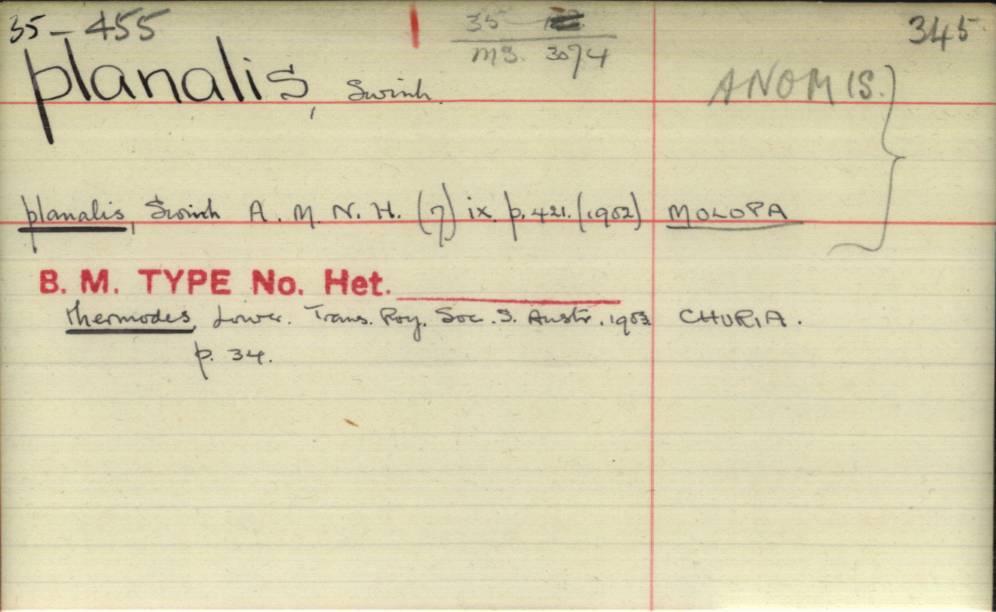 35-455
35
MS. 3074
345
planalis, Swinh.
ANOMIS.
planalis, Swinh A. M. N. H. (7) ix. p. 421. (1902) MOLOPA
B. M. TYPE No. Het.
thermodes, Lower. Trans. Roy. Soc. S. Austr. 1903 CHURIA.
p. 34.